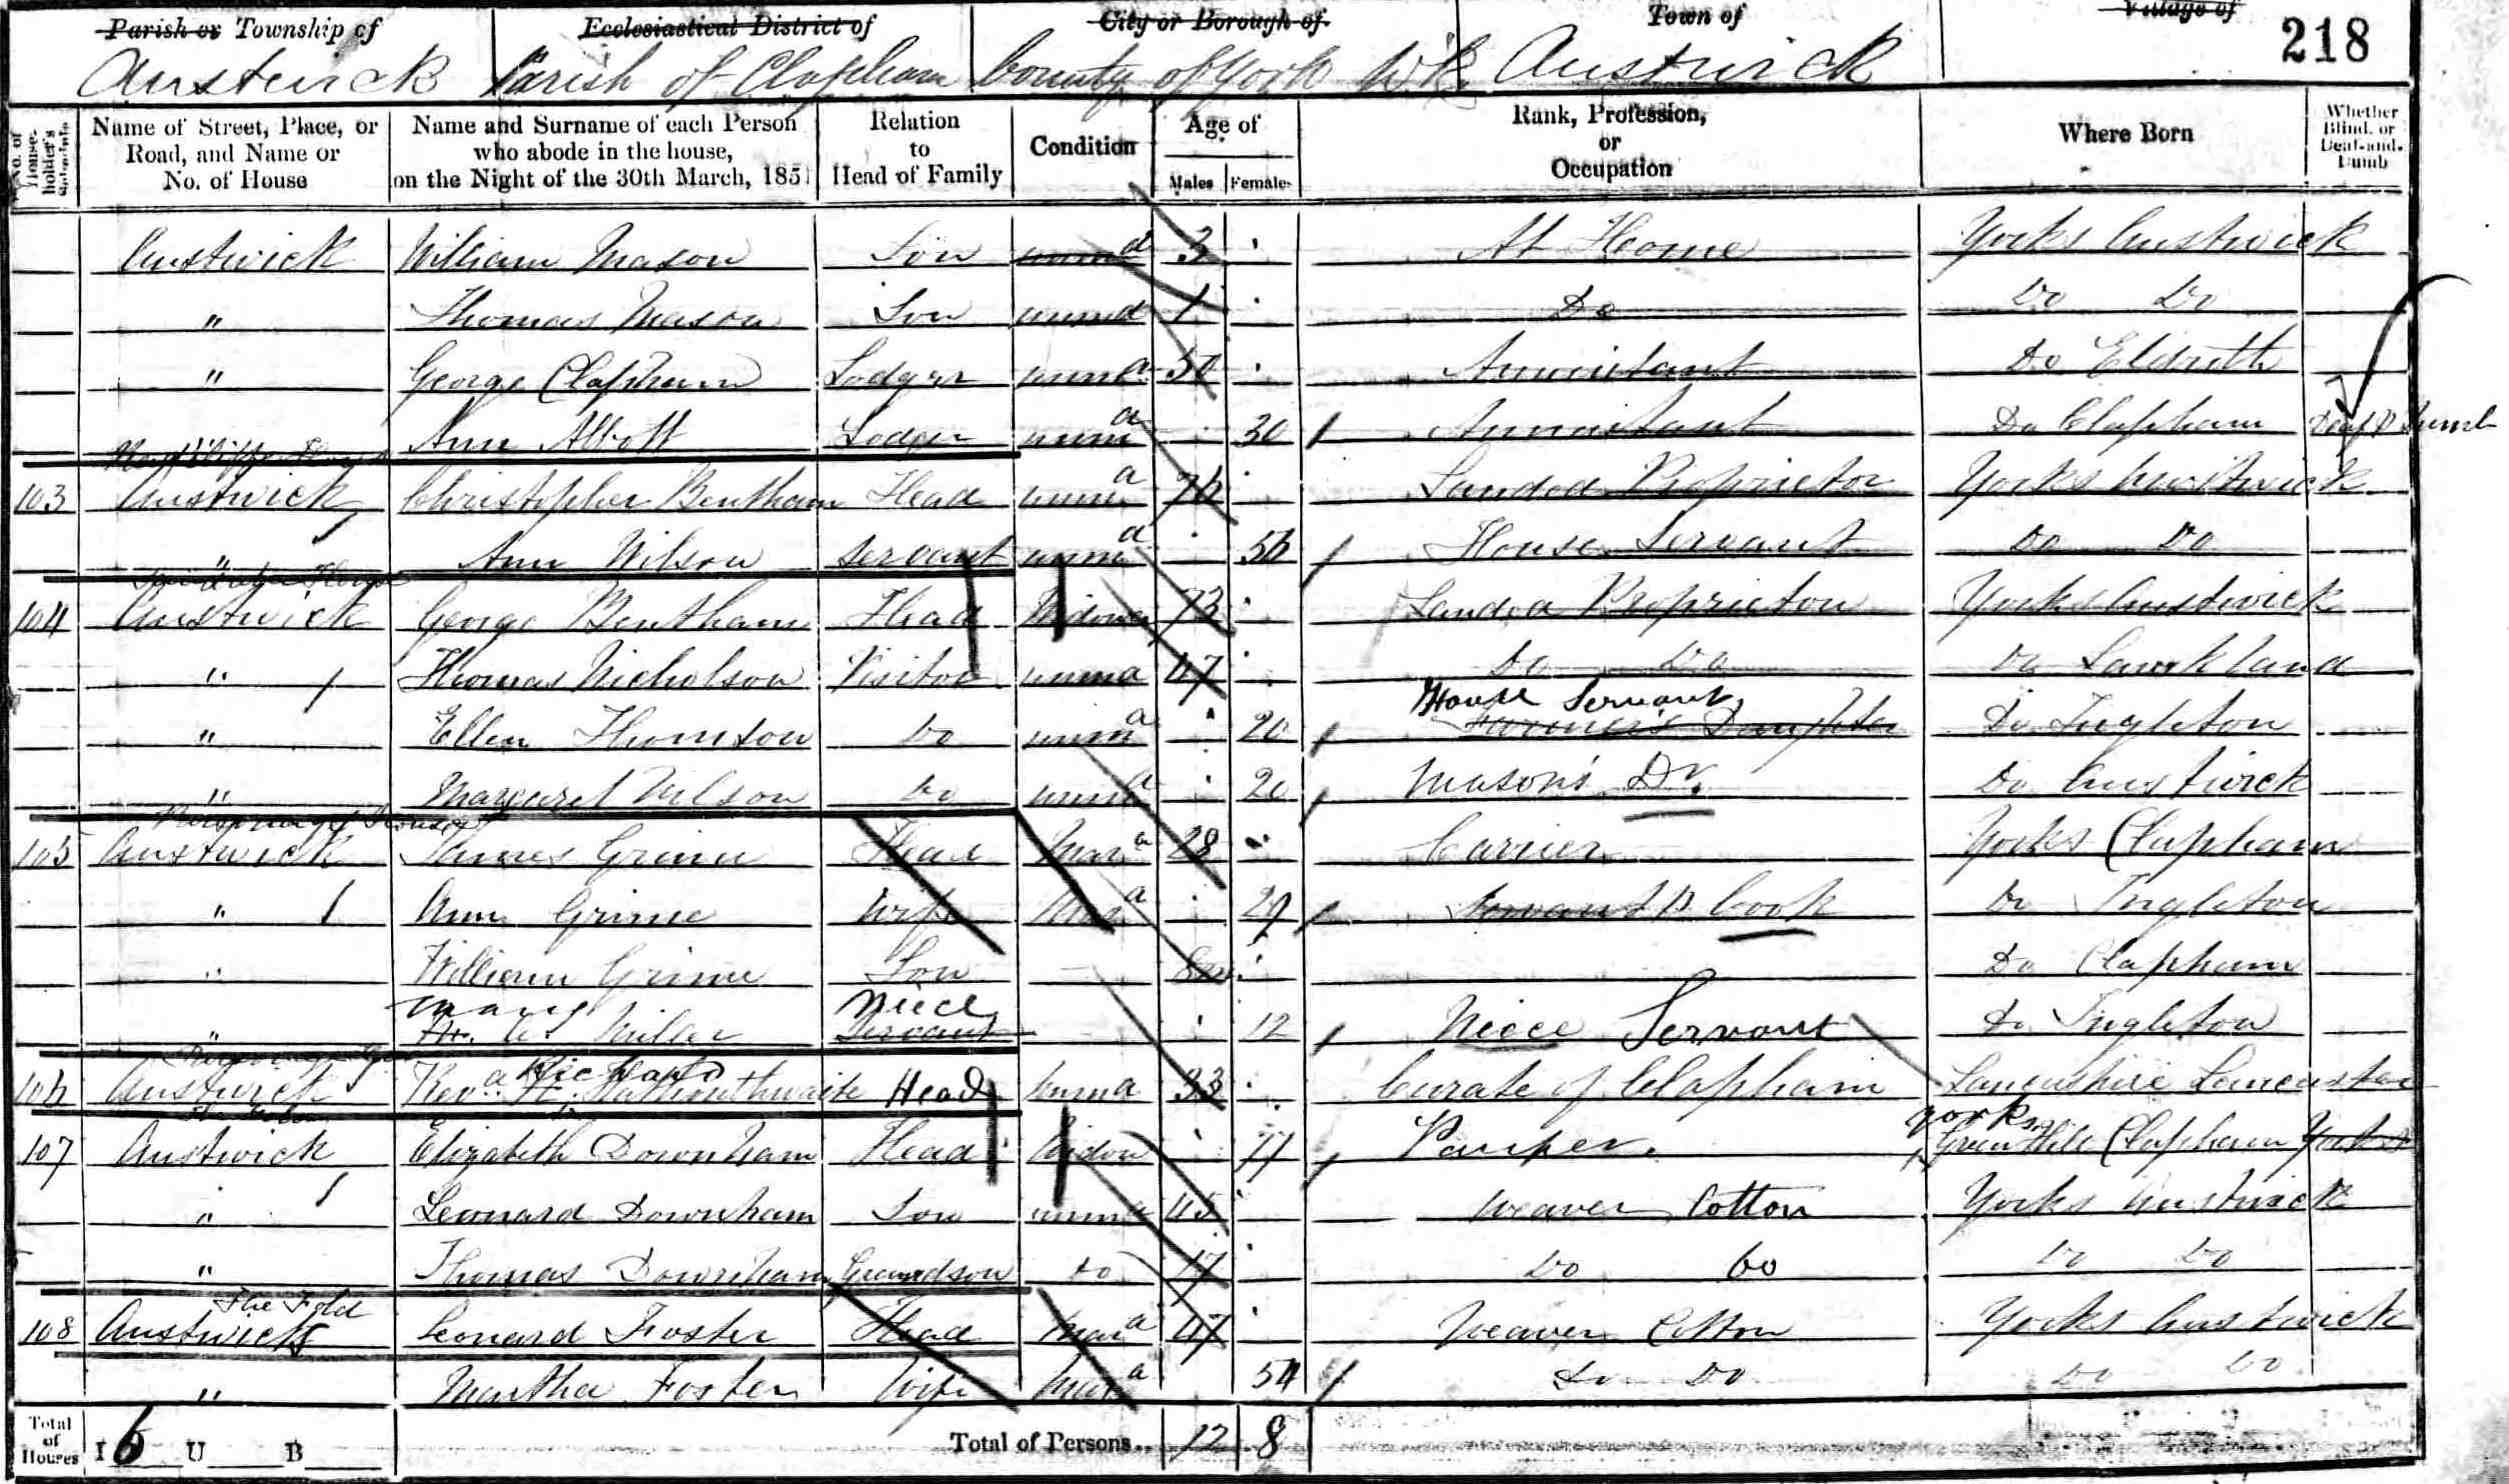 Parish or Township of Ecclesiastical District of City or Borough of Town of Village of 218
Austwick Parish of Clapham County of York W R. Austwick
No. of House-holder's Schedule Name of Street, Place, or Road, and Name or No. of House Name and Surname of each Person who abode in the house, on the Night of the 30th March, 1851 Relation to Head of Family Condition Age of Males Females Rank, Profession, or Occupation Where Born Whether Blind, or Deaf-and-Dumb
Austwick William Mason Son unmd 3 At Home Yorks Austwick
" Thomas Mason Son unmd 1 Do Do Do
" George Clapham Lodger unmd 50 Annuitant Do Eldroth
" Ann Abbott Lodger unmd 30 Annuitant Do Clapham Deaf & Dumb
103 Austwick Christopher Bentham Head unmd 76 Landed Proprietor Yorks Austwick
" Ann Wilson Servant unmd 56 House Servant Do Do
104 Austwick George Bentham Head Widower 73 Landed Proprietor Yorks Austwick
" Thomas Nicholson Visitor unmd 47 Do Do Do Lawkland
House Servant
" Ellen Thomson Do unmd 20 Farmer's Daughter Do Ingleton
" Margaret Wilson Do unmd 20 Mason's Dr. Do Austwick
105 Austwick James Grime Head Mard 28 Carrier Yorks Clapham
" Ann Grime Wife Mard 29 Cook Do Ingleton
" William Grime Son Do Clapham
Niece
" Miller Servant 12 Niece Servant Do Ingleton
Richard
106 Austwick Revd Head unmd 33 Curate of Clapham Lancashire Lancaster
Yorks
107 Austwick Elizabeth Downham Head Widow 77 Pauper. Green Hill Clapham Yorks
" Leonard Downham Son unmd 45 Weaver Cotton Yorks Austwick
" Thomas Downham Grandson Do 17 Do Do Do Do
The Fold
108 Austwick Leonard Foster Head Mard 47 Weaver Cotton Yorks Austwick
" Martha Foster Wife Mard 54 Do Do Do Do
Total of Houses I 6 U B Total of Persons.. 12 8